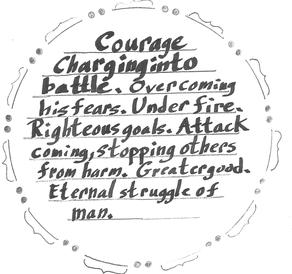 Courage
Charging into
battle. Overcoming
his fears. Under fire.
Righteous goals. Attack
coming, stopping others
from harm. Greater good.
Eternal struggle of
man.